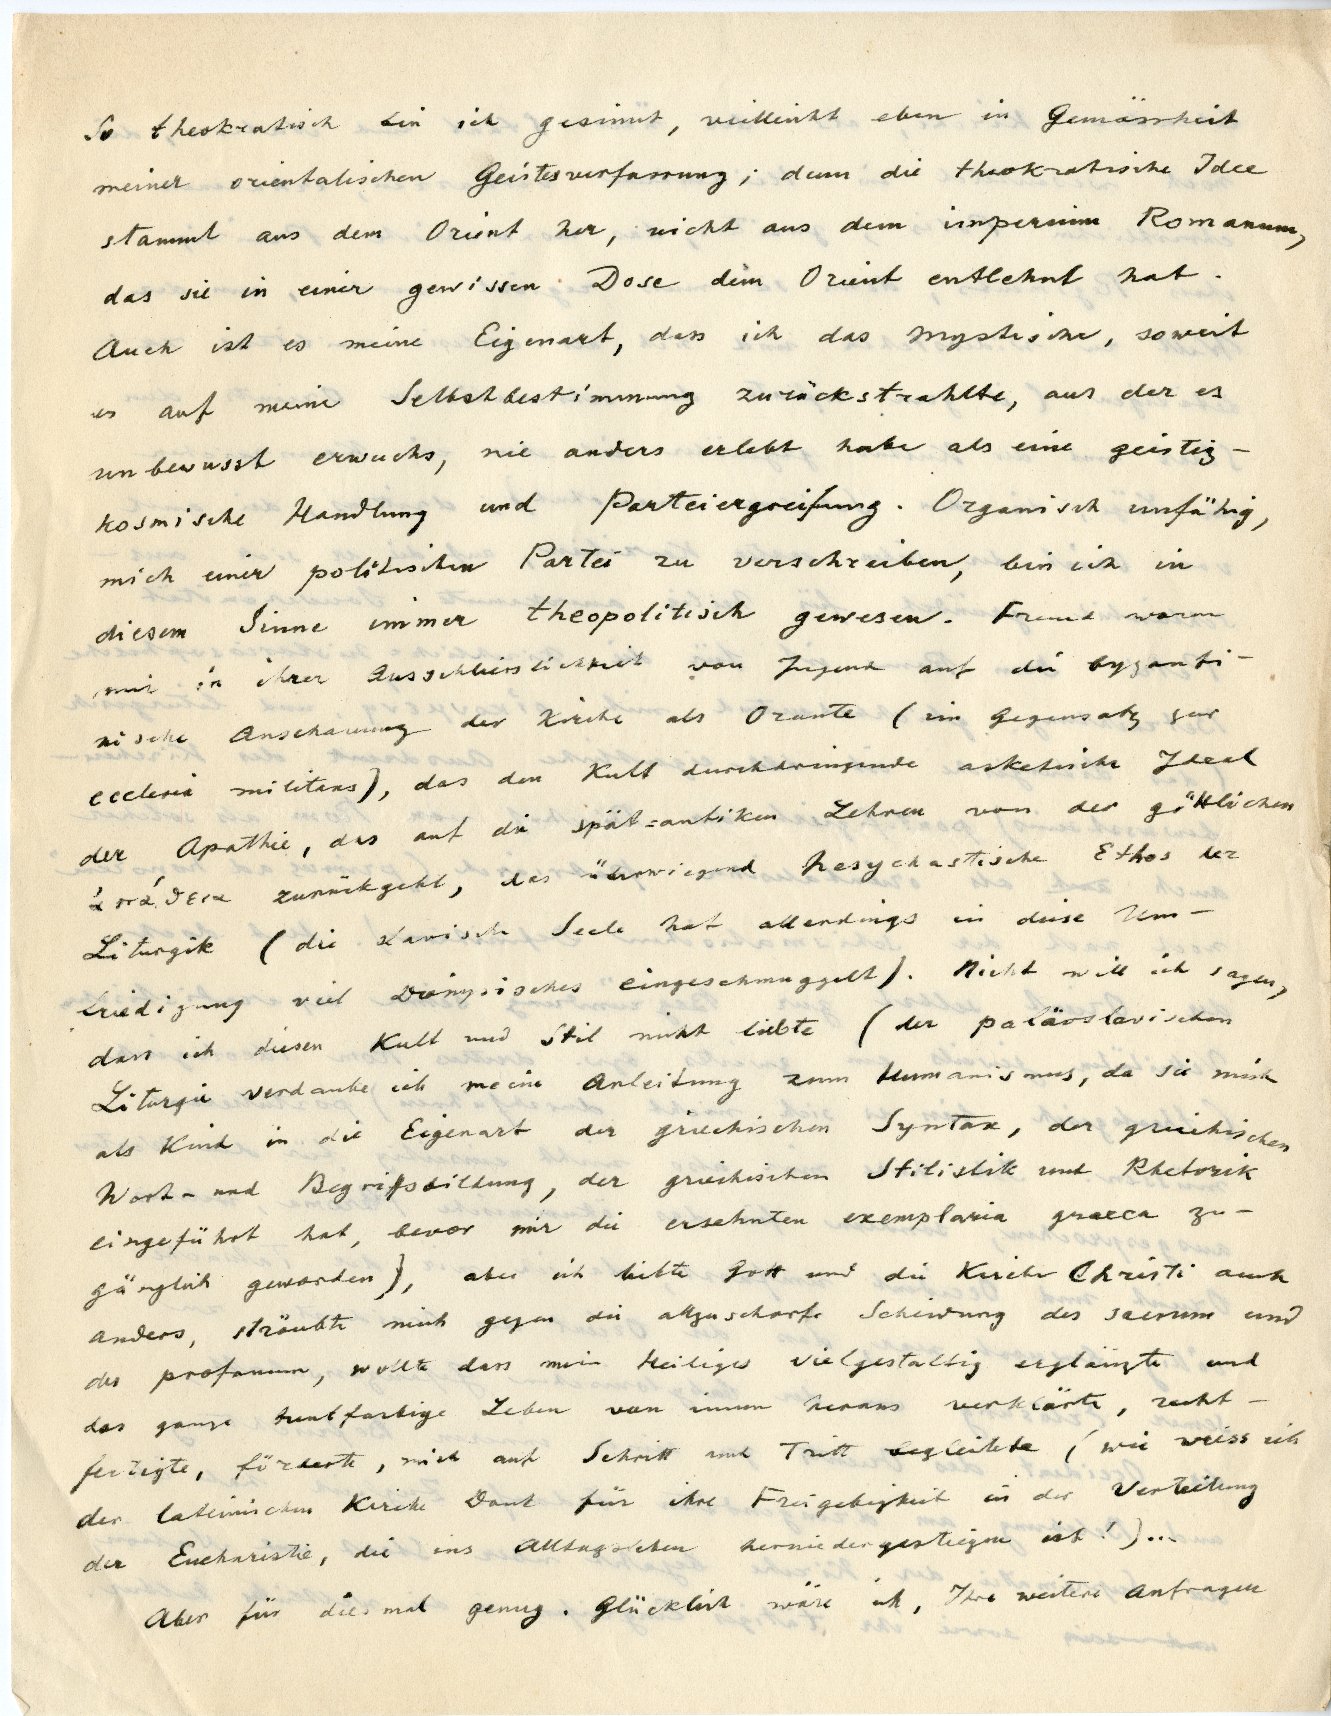 So theokratisch bin ich gesinnt, vielleicht eben in Gemässheit
meiner orientalischen Geistesverfassung; denn die theokratische Idee
stammt aus dem Orient her, nicht aus dem imperium Romanum,
das sie in einer gewissen Dose dem Orient entlehnt hat.
Auch ist es meine Eigenart, dass ich das Mystische, soweit
es auf meine Selbstbestimmung zurückstrahlte, aus der es
unbewusst erwuchs, nie anders erlebt habe als eine geistig-
kosmische Handlung und Parteiergreifung. Organisch unfähig,
mich einer politischen Partei zu verschreiben, bin ich in
diesem Sinne immer theopolitisch gewesen. Fremd waren
mir in ihrer Ausschliesslichkeit von Jugend auf die byzanti-
nische Anschauung der Kirche als Orante (im Gegensatz zur
ecclesia militans), das den Kult durchdringende asketische Ideal
der Apathie, das auf die spät=antiken Lehren von der göttlichen
ἀπάθεια zurückgeht, das überwiegend hesychastische Ethos der
Liturgik (die slavische Seele hat allerdings in diese Um-
friedigung viel Dionysisches eingeschmuggelt). Nicht will ich sagen,
dass ich diesen Kult und Stil nicht liebte (der paläoslavischen
Liturgie verdanke ich meine Anleitung zum Humanismus, da sie mich
als Kind in die Eigenart der griechischen Syntax, der griechischen
Wort- und Begriffsbildung, der griechischen Stilistik und Rhetorik
eingeführt hat, bevor mir die ersehnten exemplaria graeca zu-
gänglich geworden), aber ich liebte Gott und die Kirche Christi auch
anders, sträubte mich gegen die allzuscharfe Scheidung des sacrum und
des profanum, wollte dass mein Heiliges vielgestaltig erglänzte und
das ganze buntfarbige Leben von innen heraus verklärte, recht-
fertigte, förderte, mich auf Schritt und Tritt begleitete (wie weiss ich
der lateinischen Kirche Dank für ihre Freigebigkeit in der Verteilung
der Eucharistie, die ins Alltagsleben herniedergestiegen ist!)...
Aber für diesmal genug. Glücklich wäre ich, Ihre weitere Anfragen